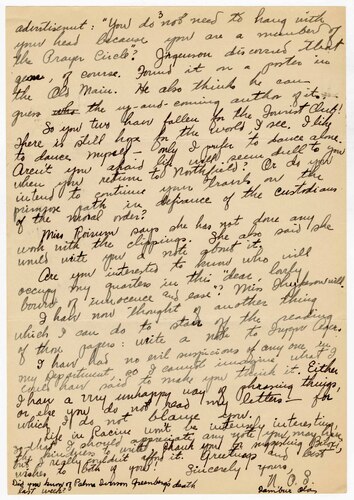 3
advertisement: "You do not need to hang with
your head because you are a member of
the Prayer Circle"? Jorgenson discovered that
gem, of course. Found it on a poster in
the Old Main. He also thinks he can
guess who the up-and-coming author of it is.
So you two have fallen for the Tourist Club!
There is still hope for the world I see. I like
to dance myself. Only I prefer to dance alone.
Aren't you afraid life will seem dull to you
when you return to Northfield? Or do you
intend to continue your travels on the
primrose path in defiance of the custodians
of the moral order?
Miss Roisum says she has not done any
work with the clippings. She also said she
would write you a note about it.
Are you interested to know who will
occupy my quarters in this "dear lovely
bower of innocence and ease"? Miss will.
I have now thought of another thing
which I can do to stave off the reading
of those papers: write a note to
I have had no evil suspicions of any one in
my department, so I can't imagine what I
could have said to make you think it. Either
I have a very unhappy way of phrasing things,
or else you do not read my letters — for
which I do not blame you.
Life in Racine won't be intensely interesting,
so I should appreciate any note you may have
the kindness to write. Thank you in advance,
but I really
wishes to both of you! Greetings and best
Sincerely yours,
N. O. S.
Did you know of Palma Iverson Greenberg's death
last week?